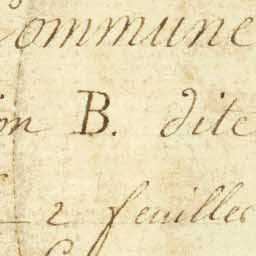 Commune
on B. dite
2 feuilles